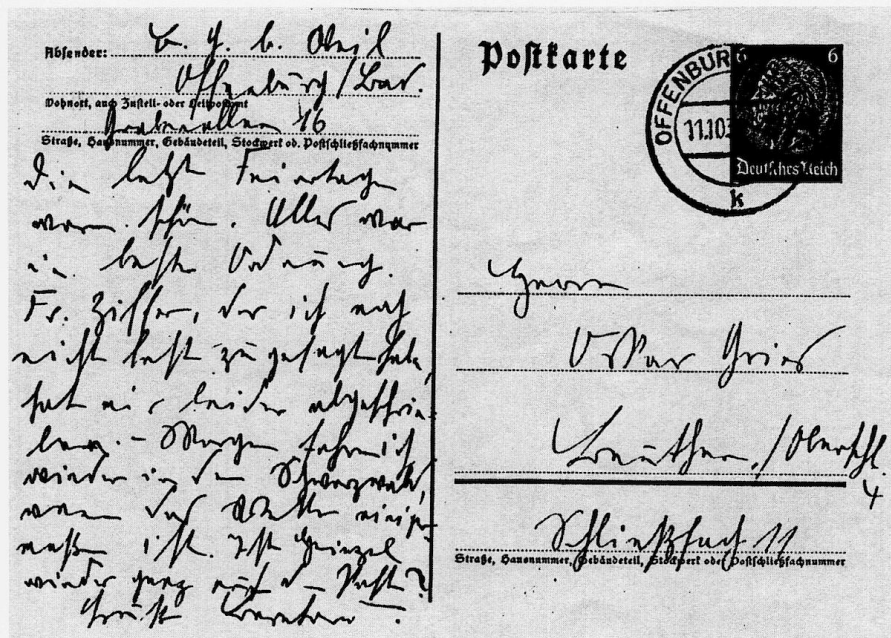 Absender:
Weil
Offenburg/Bad.
Wohnort, auch Zustell- oder Leitpostamt
16
Straße, Hausnummer, Gebäudeteil, Stockwerk od. Postschließfachnummer
Die letzten Feiertage
waren schön. Alles war
in bester Ordnung.
Fr. Ziffer, der ich noch
nicht fest zugesagt habe,
hat mir leider abgeschrie-
ben. – Morgen fahre ich
wieder in den Schwarzwald,
wenn das Wetter einiger-
maßen ist. Ist
wieder ganz auf der Post?
Postkarte
OFFENBURG
11.10.3
k
6 6
Deutsches Reich
Herrn
Oskar Gries
Beuthen/Oberschl.
4
Schließfach 11
Straße, Hausnummer, Gebäudeteil, Stockwerk oder Postschließfachnummer